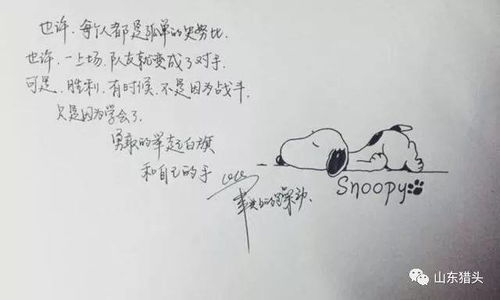 也许.每个人都是孤单的史努比.
也许.一上场.队友就变成了对手.
可是.胜利.有时候.不是因为战斗.
只是因为学会了.
勇敢的举起白旗
和自己的手
coco
Snoopy
山东猎头